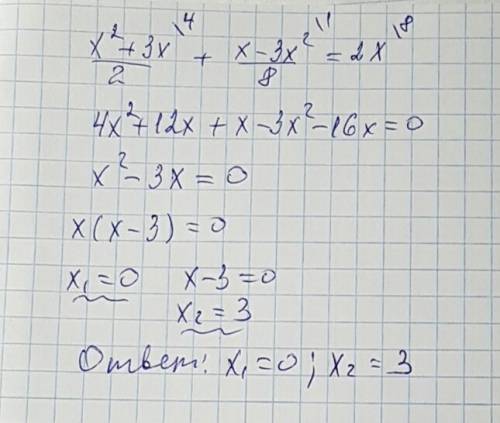 (x² + 3x)/2 \4 + (x - 3x²)/8 \1 = 2x \8
4x² + 12x + x - 3x² - 16x = 0
x² - 3x = 0
x(x - 3) = 0
x₁ = 0   x - 3 = 0
x₂ = 3
Ответ: x₁ = 0; x₂ = 3